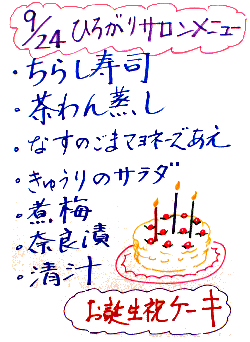 9/24 ひろがりサロンメニュー
・ちらし寿司
・茶わん蒸し
・なすのごまマヨネーズあえ
・きゅうりのサラダ
・煮梅
・奈良漬
・清汁
お誕生祝ケーキ